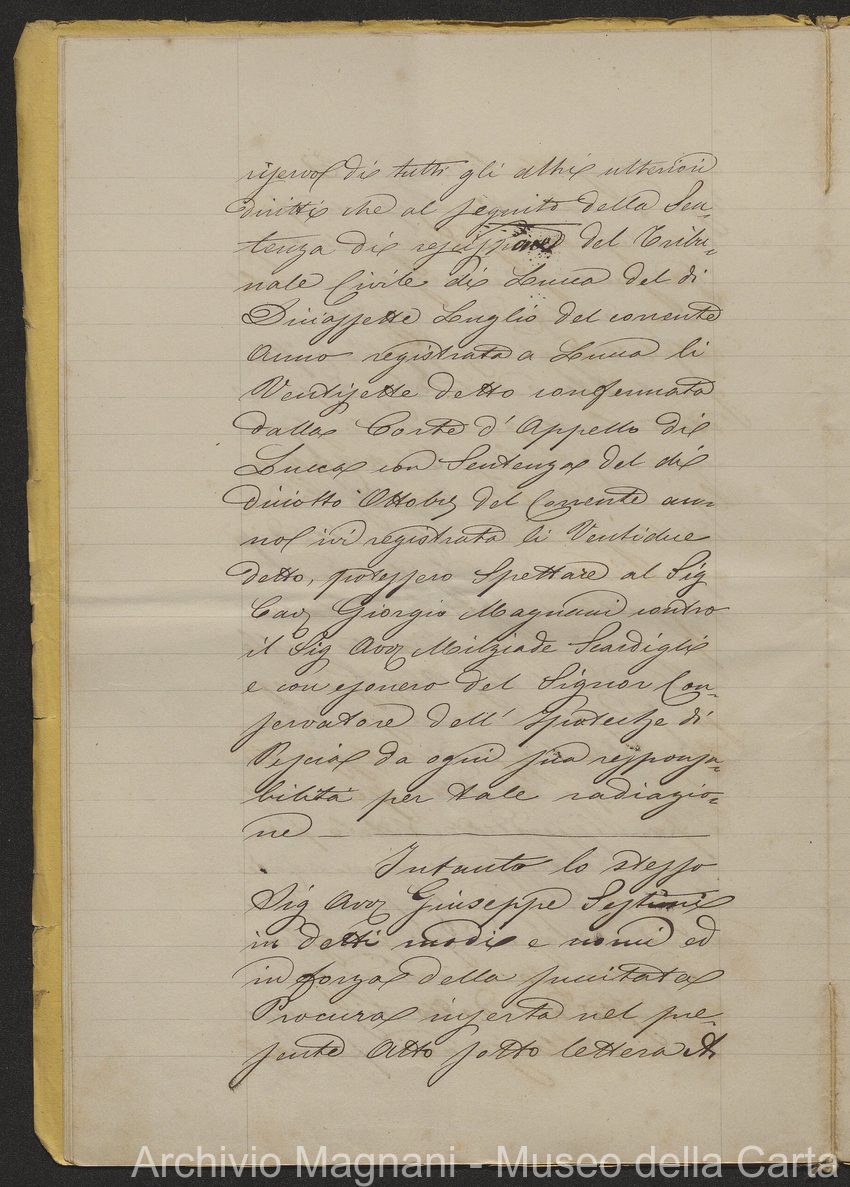 riserva di tutti gli altri ulteriori
diritti che al seguito della Sen-
tenza di del Tribu-
nale Civile di Lucca del di
Diciassette Luglio del corrente
Anno registrata a Lucca li
Ventisette detto confermata
dalla Corte d'Appello di
Lucca con Sentenza del di
diciotto Ottobre del Corrente an-
no ivi registrata li Ventidue
detto, potessero Spettare al Sig
Cav Giorgio Magnani contro
il Sig Avv Milziade Scardigli
e con esonero del Signor Con-
servatore dell' Ipoteche di
Pescia da ogni sua responsa-
bilità per tale radiazio-
ne
Intanto lo stesso
Sig Avv Giuseppe Sestini
in detti modi e nomi ed
in forza della succitata
Procura inserta nel pre-
sente Atto sotto lettera A
Archivio Magnani - Museo della Carta